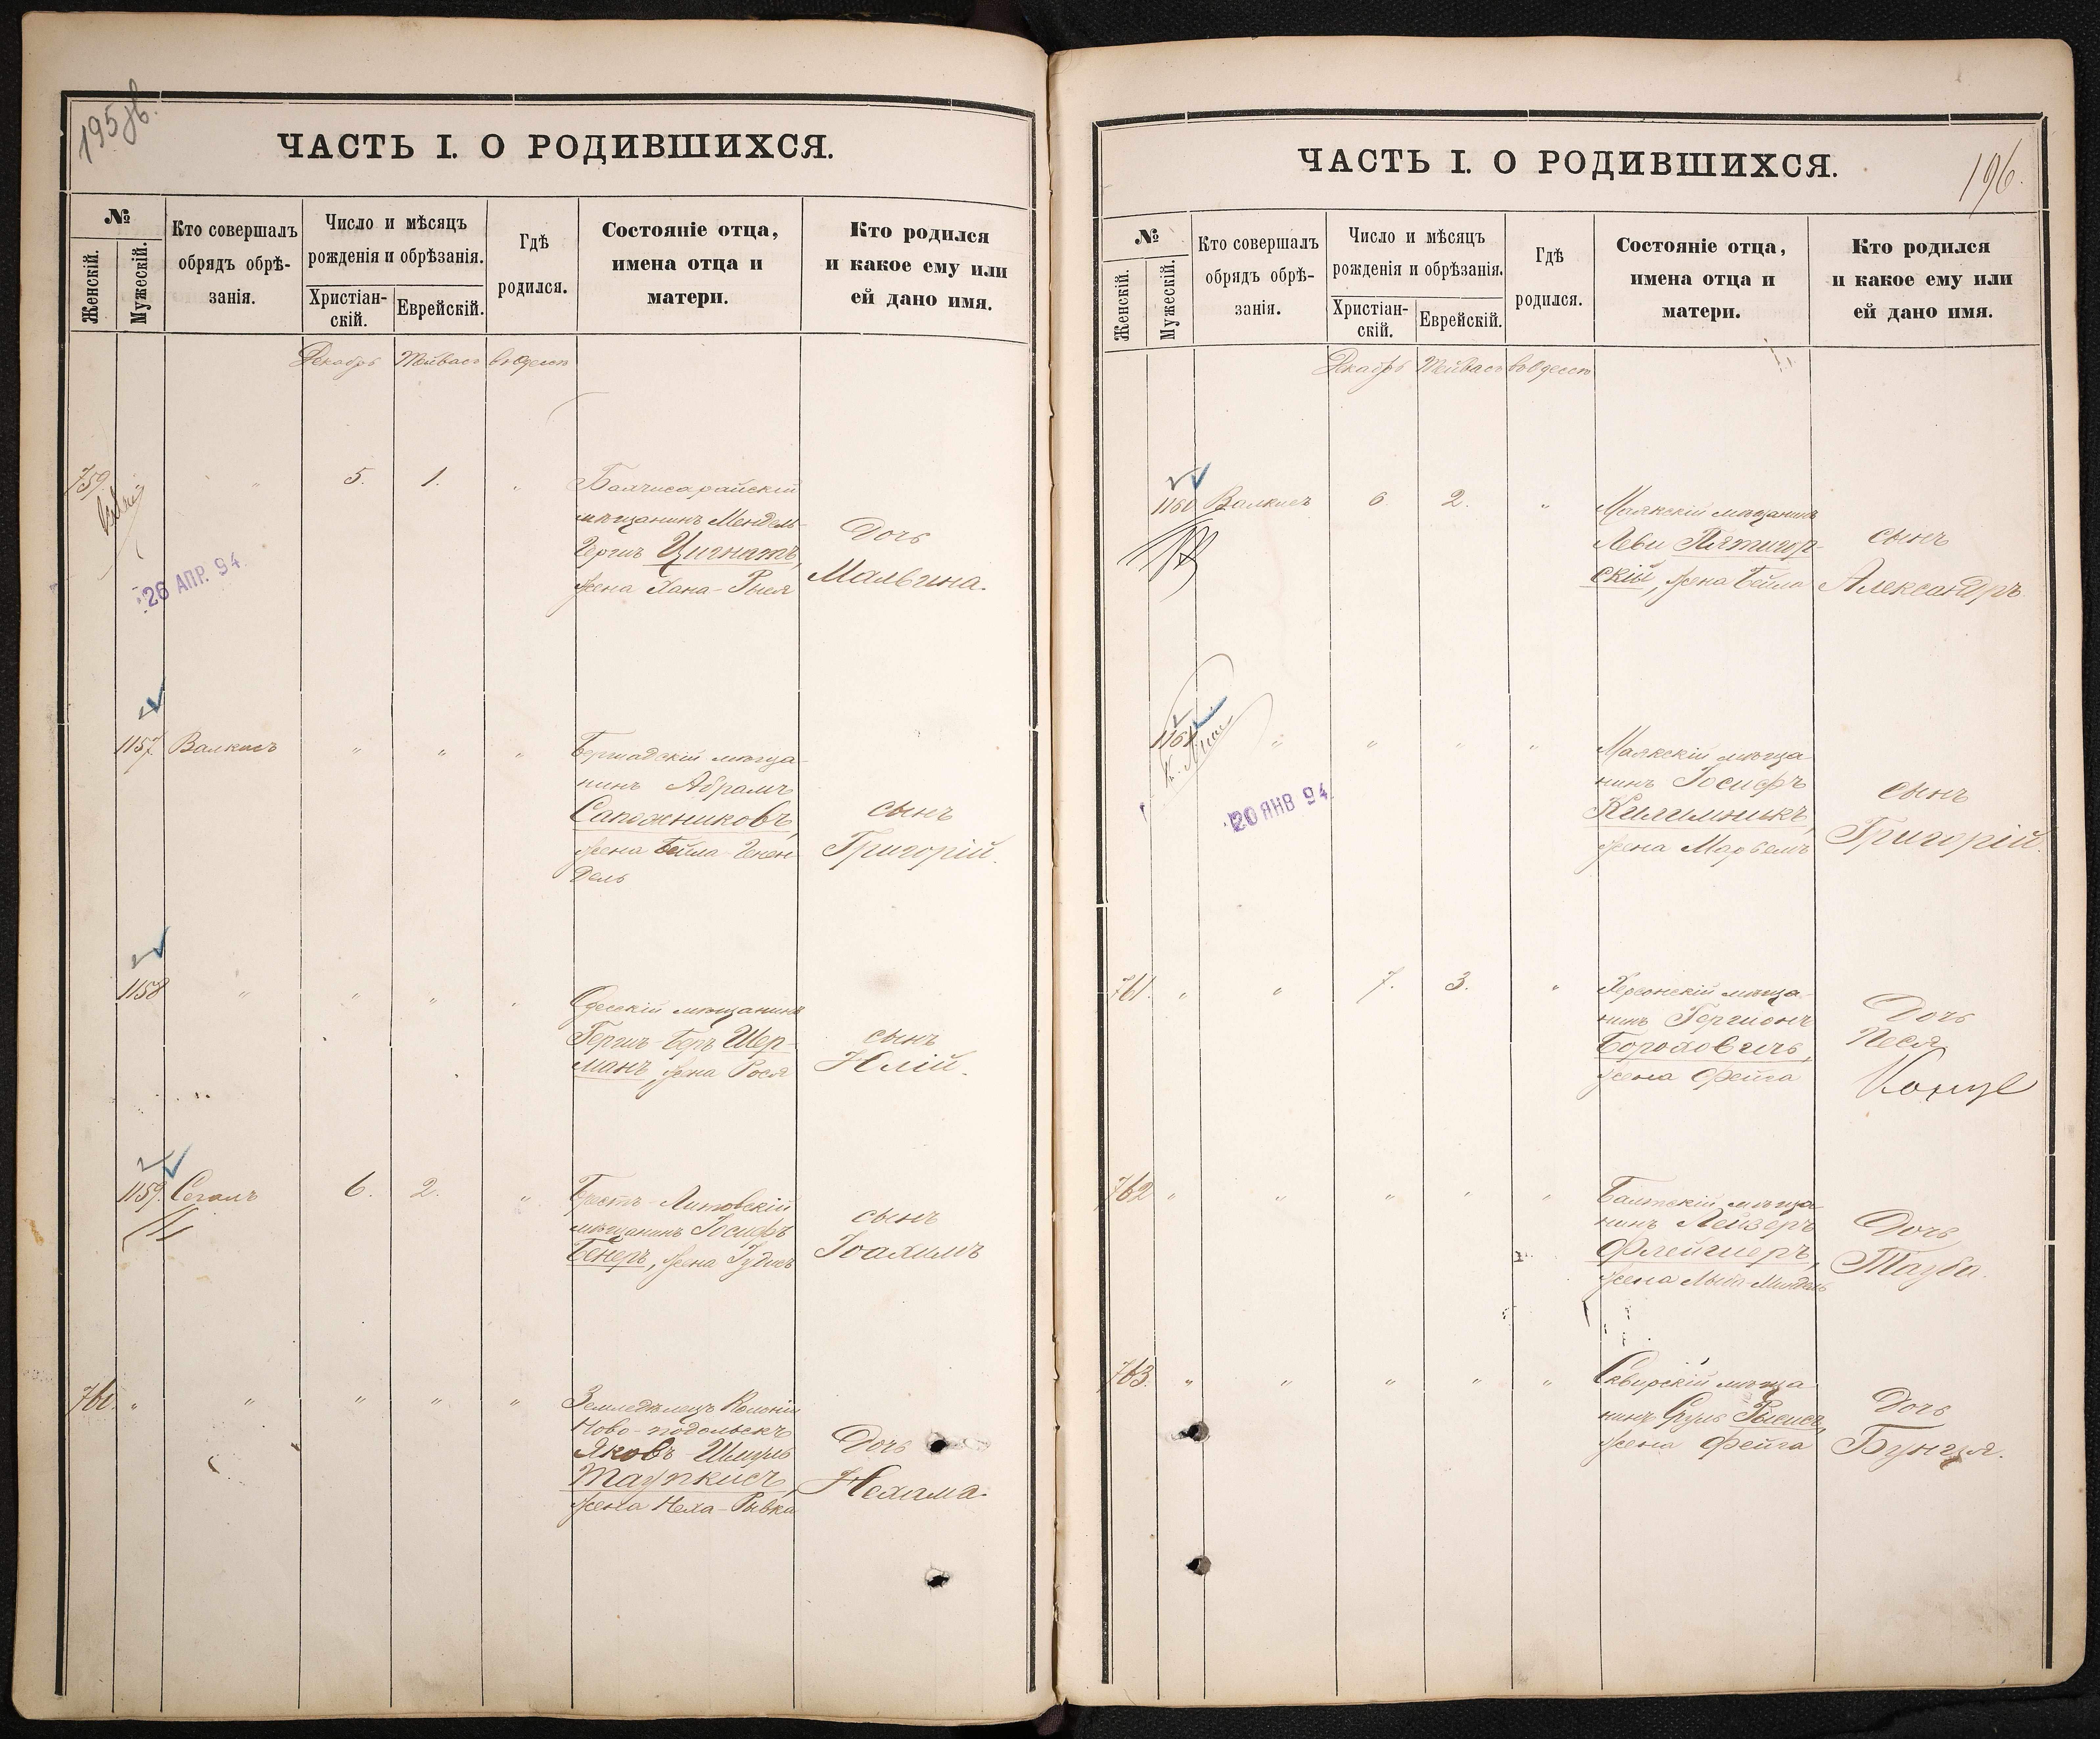 195 об.
ЧАСТЬ I. О РОДИВШИХСЯ.
№
Женскій.
Мужескій.
Кто совершалъ
обрядъ обрѣ-
занія.
Число и мѣсяцъ
рожденія и обрѣзанія.
Христіан-
скій.
Еврейскій.
Гдѣ
родился.
Состояніе отца,
имена отца и
матери.
Кто родился
и какое ему или
ей дано имя.
Декабрь Тейвасъ въ Одессѣ
759. " 5. 1. "
26 АПР. 94
Бахчисарайскій
мѣщанинъ Мендель-
Гершъ Цигнатъ,
жена Хана-Рыся
Дочь
Мальвина.
1157. Валкисъ " " "
Бершадскій мѣща-
нинъ Абрамъ
Сапожниковъ,
жена Бейла-Генен-
дель
сынъ
Григорій.
1158 " " " "
Одесскій мѣщанинъ
Гершъ-Беръ Шер-
манъ, жена Рося
сынъ
Юлій.
1159. Сегалъ 6. 2. "
Брестъ-Литовскій
мѣщанинъ Іосифъ
Бекеръ, жена Іудисъ
сынъ
Іоахимъ
760. " " " " "
Земледѣлецъ Колоніи
Ново-подольскъ
Яковъ-Шмуль
Таупкисъ,
жена Неха-Рывка
Дочь
Нехама.
ЧАСТЬ I. О РОДИВШИХСЯ.
196.
№
Женскій.
Мужескій.
Кто совершалъ
обрядъ обрѣ-
занія.
Число и мѣсяцъ
рожденія и обрѣзанія.
Христіан-
скій.
Еврейскій.
Гдѣ
родился.
Состояніе отца,
имена отца и
матери.
Кто родился
и какое ему или
ей дано имя.
Декабрь Тейвасъ въ Одессѣ
1160 Валкисъ 6 2. "
Маякскій мѣщанинъ
Леви Пятигор-
скій, жена Бейла
сынъ
Александръ
1161 " " " "
20 ЯНВ 94
Маякскій мѣща-
нинъ Іосифъ
Килимникъ,
жена Марьемъ
сынъ
Григорій.
761. " " 7. 3. "
Херсонскій мѣща-
нинъ Гершонъ
Бороховичъ,
жена Фейга
Дочь
Песя
762 " " " " "
Балтскій мѣща-
нинъ Лейзеръ
Флейшеръ,
жена Миндель
Дочь
Тауба.
763. " " " " "
Сквирскій мѣща-
нинъ Сруль Рысисъ,
жена Фейга
Дочь
Бунця.